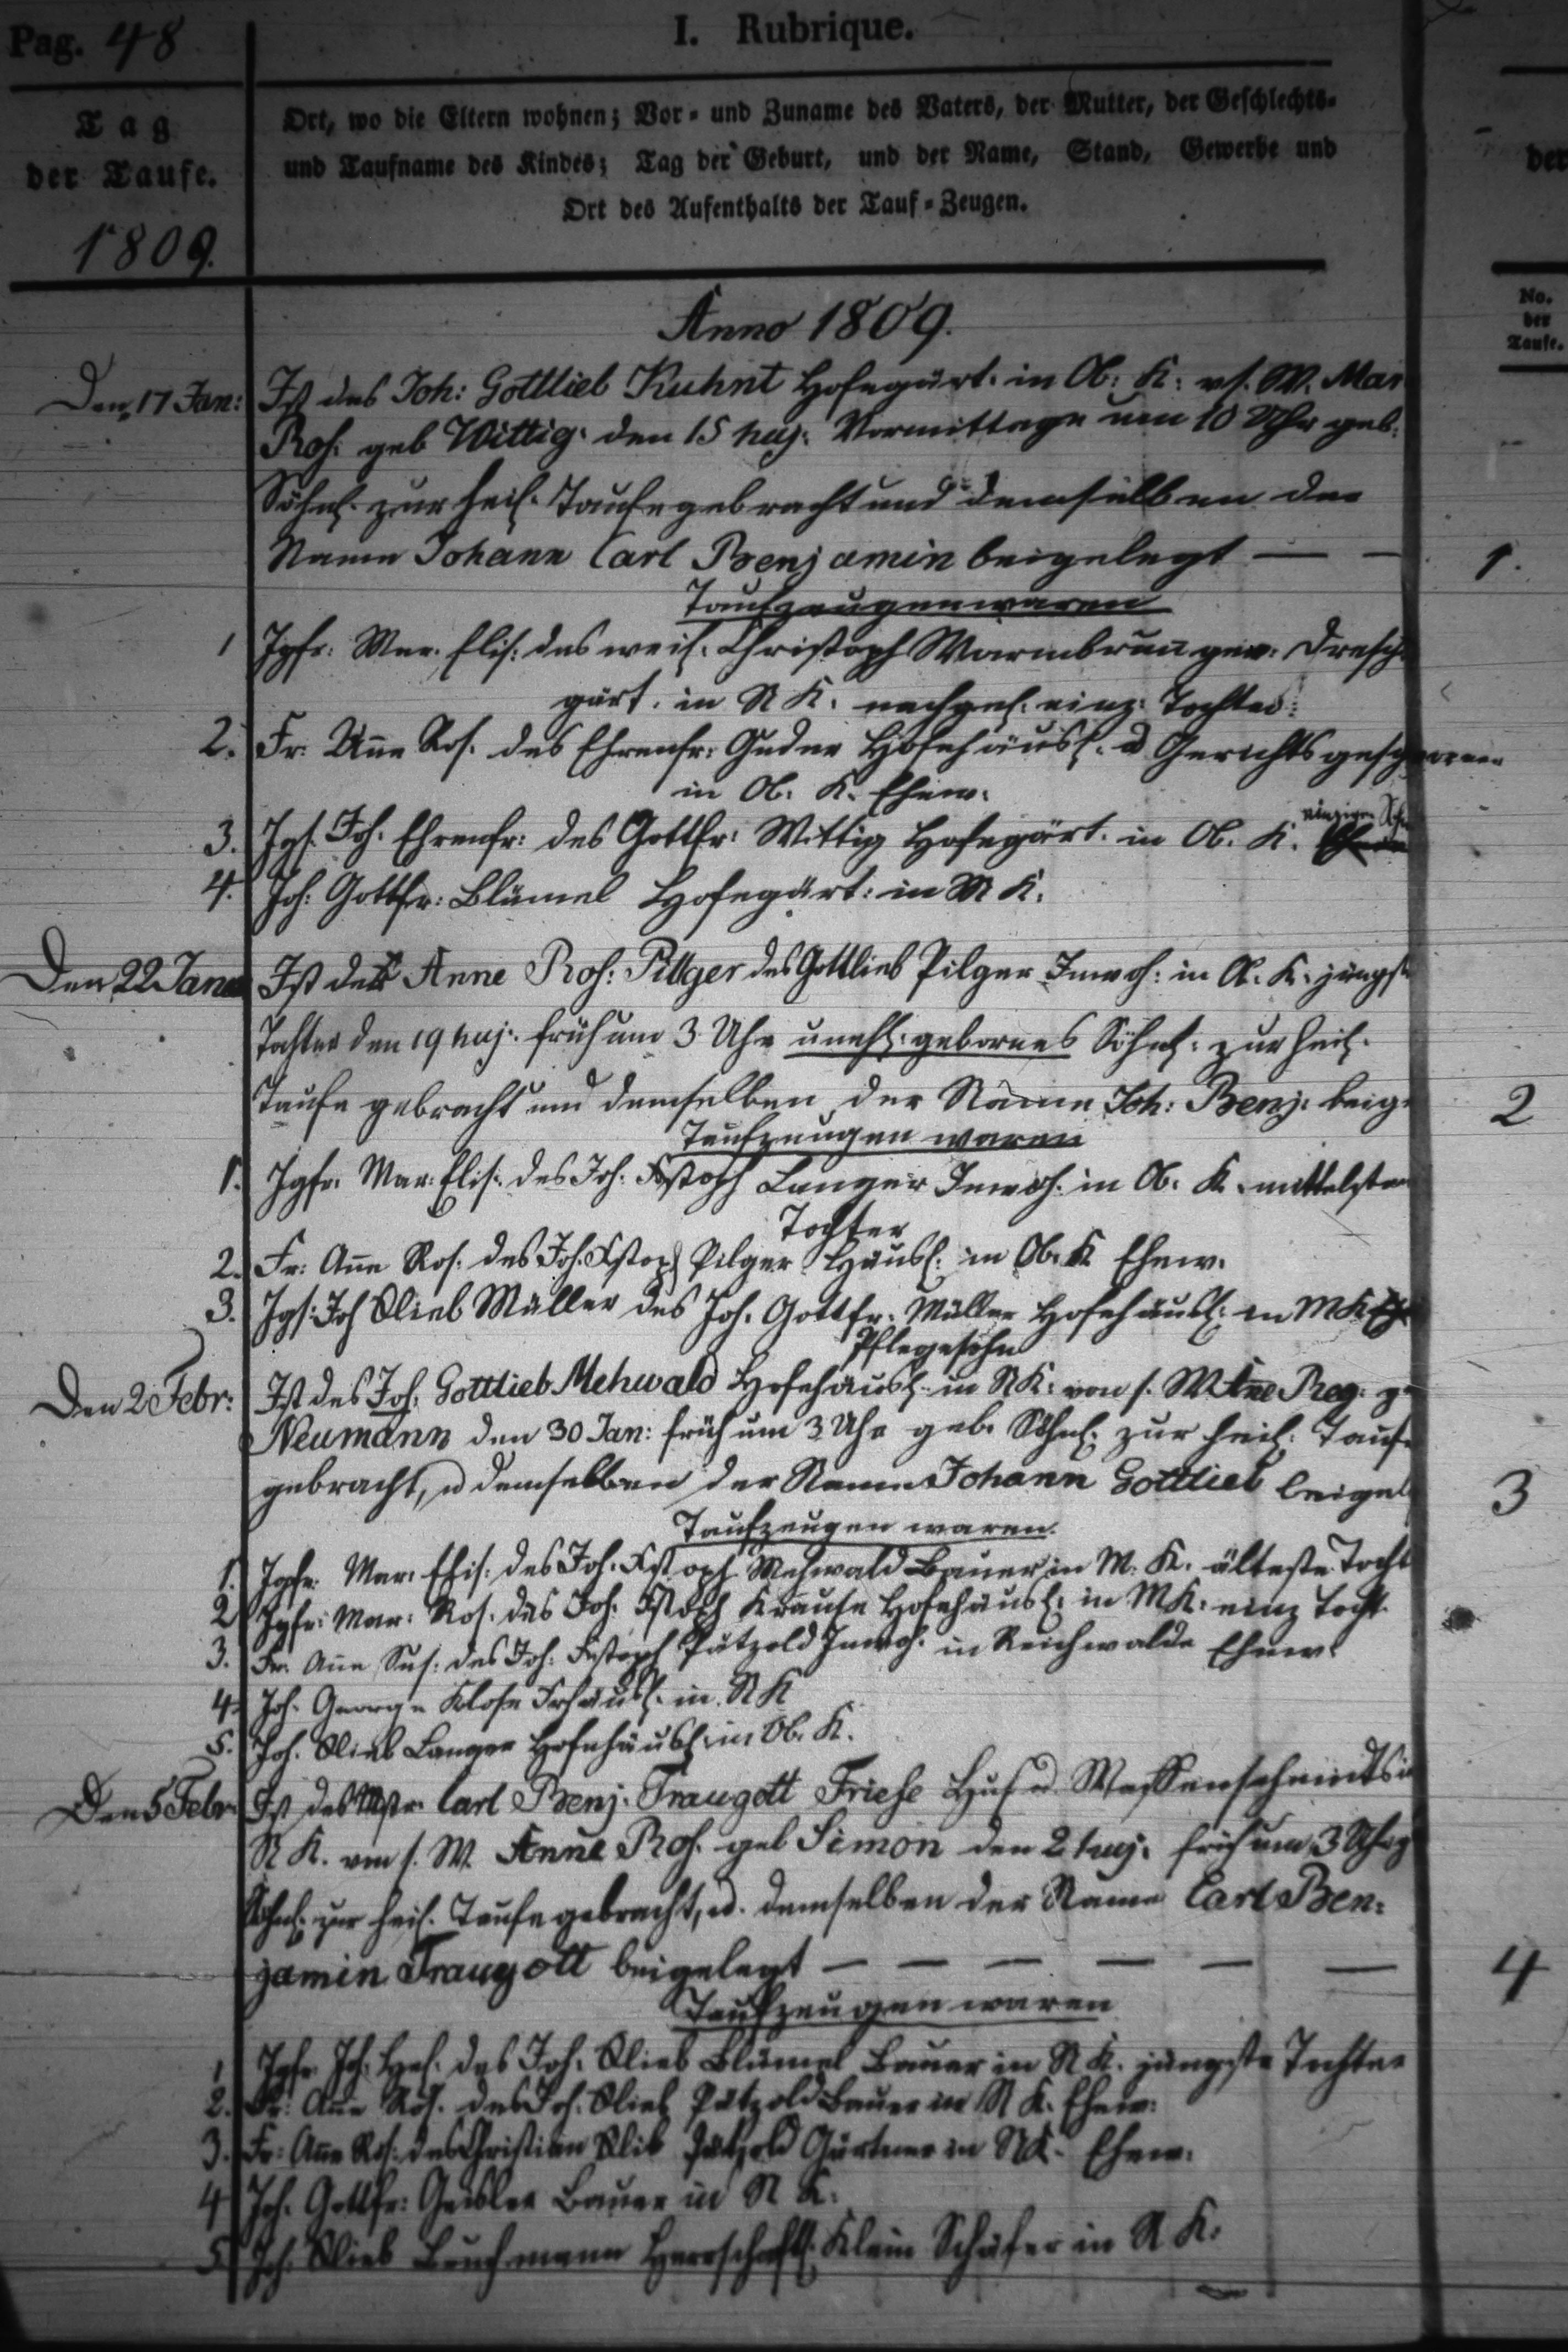 Pag. 48
I. Rubrique.
Tag
der Taufe.
1809.
Ort, wo die Eltern wohnen; Vor- und Zuname des Vaters, der Mutter, der Geschlechts-
und Taufname des Kindes; Tag der Geburt, und der Name, Stand, Gewerbe und
Ort des Aufenthalts der Tauf-Zeugen.
der
No.
der
Taufe.
Anno 1809.
Den 17 Jan: Ist des Joh: Gottlieb Kuhnt Hofegärt. in Ob: K: v s. W. Mar
Ros: geb Wittig. den 15 huj: Vormittage um 10 Uhr geb:
Söhnl. zur heil. Taufe gebracht und demselben der
Name Johann Carl Benjamin beigelegt — — 1.
Taufzeugen waren
1 Jgfr: Mar. Elis: des weil. Christoph Warmbrun gew: Dresch
gärt. in N K: nachgel. einz: Tochter:
2. Fr: Ane Ros. des Ehrenfr: Guder Hofehäusl. u Gerichtsgeschworen
in Ob: K. Ehew.
3. Jgs. Joh. Ehrenfr: des Gottfr: Wittig Hofegärt. in Ob. K. einziger Sohn
4. Joh: Gottfr: Blümel Hofegärt: in M K.
Den 22 Janu Ist der Anne Ros: Pillger des Gottlieb Pilger Inwoh: in Ob. K. jüngst
Tochter den 19 huj: früh um 3 Uhr unehl: gebornes Söhnl: zur heil.
Taufe gebracht und demselben der Name Joh: Benj: beige 2
Taufzeugen waren
1. Jgfr. Mar: Elis: des Joh. Xstoph Langer Inwoh: in Ob. K. mittelsten
Tochter
2. Fr: Ane Ros. des Joh. Xstoph Pilger Häusl: in Ob. K Ehew.
3. Jgs: Joh Glieb Müller des Joh. Gottfr. Müller Hofehäusl: in M K
Pflegesohn
Den 2 Febr: Ist des Joh. Gottlieb Mehwald Hofehäusl: in N K: von s. W Ane Reg: g
Neumann den 30 Jan: früh um 3 Uhr geb. Söhnl: zur heil: Taufe
gebracht, u demselben der Name Johann Gottlieb beigel 3
Taufzeugen waren.
1. Jgfr. Mar. Elis: des Joh. Xstoph Mehwald Bauer in M. K. älteste Tocht
2 Jgfr: Mar: Ros. des Joh. Xstoph Krause Hofehäusl: in M K. einz Tocht
3. Fr. Ane Sus: des Joh: Xstoph Pätzold Inwoh. in Reichwalde Ehew.
4. Joh. George Klose Frhäusl. in N K
5. Joh. Glieb Langer Hofehäusl. in Ob. K.
Den 5 Febr. Ist des Mstr. Carl Benj. Traugott Friese Huf u Waffenschmidts i
N K. von s. W. Anne Ros. geb Simon den 2 huj. früh um 3 Uhr g
Söhnl. zur heil. Taufe gebracht, u. demselben der Name Carl Ben:
jamin Traugott beigelegt — — — — — — 4
Taufzeugen waren
1 Jgfr Joh: Hel. des Joh. Glieb Blümel Bauer in N K. jüngste Tochter
2. Fr: Ane Ros. des Joh. Glieb Pätzold Bauer in N K. Ehew:
3. Fr: Ane Ros: des Christian Glieb Pätzold Gärtner in N K. Ehew.
4 Joh. Gottfr: Geisler Bauer in N K.
5. Joh. Glieb Buchmann Herrschaftl: Klein Schäfer in N K.